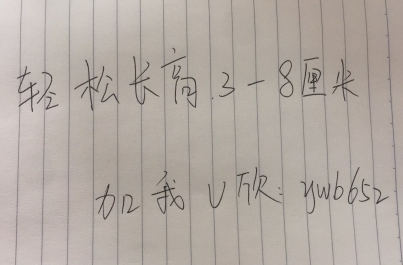 轻松长高.3-8厘米
加我V欣:yw6652